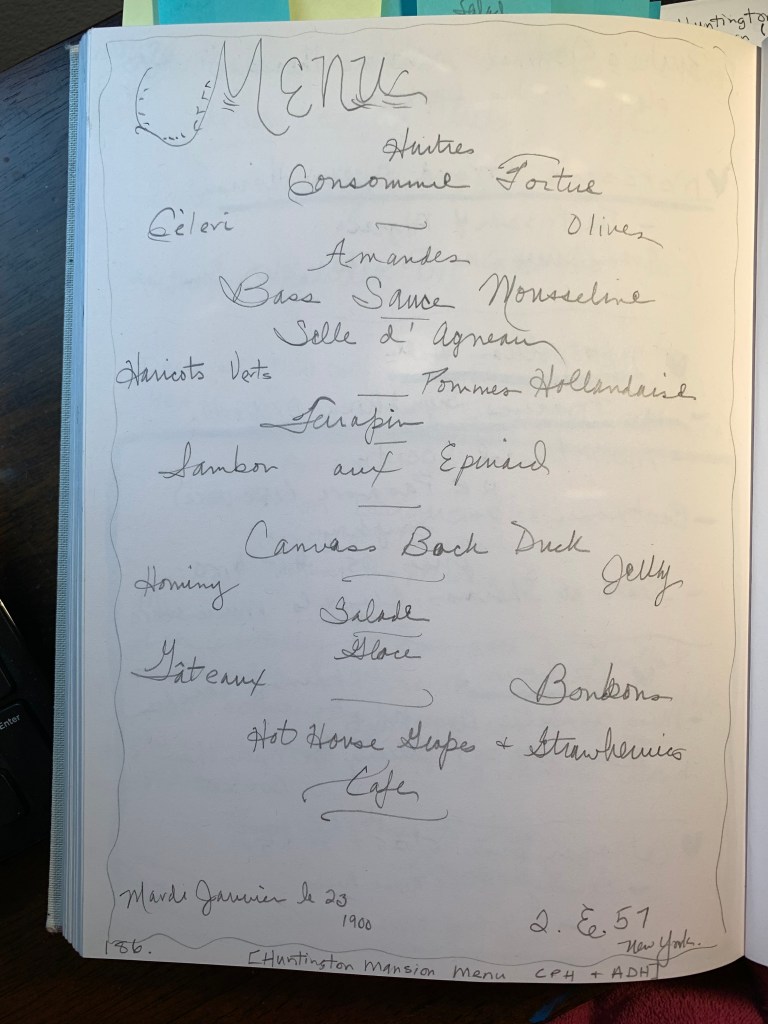 Salad
Huntington
MENU
Huitres
Consommé Tortue
Céleri Olives
Amandes
Bass Sauce Mousseline
Selle d' Agneau
Haricots Verts Pommes Hollandaise
Terrapin
Jambon aux Epinard
Canvass Back Duck
Hominy Jelly
Salade
Glace
Gâteaux Bonbons
Hot House Grapes + Strawberries
Cafe
Mardi Janvier le 23
1900
2. E. 57
New York.
186.
[Huntington Mansion Menu CPH + ADH]
Enter